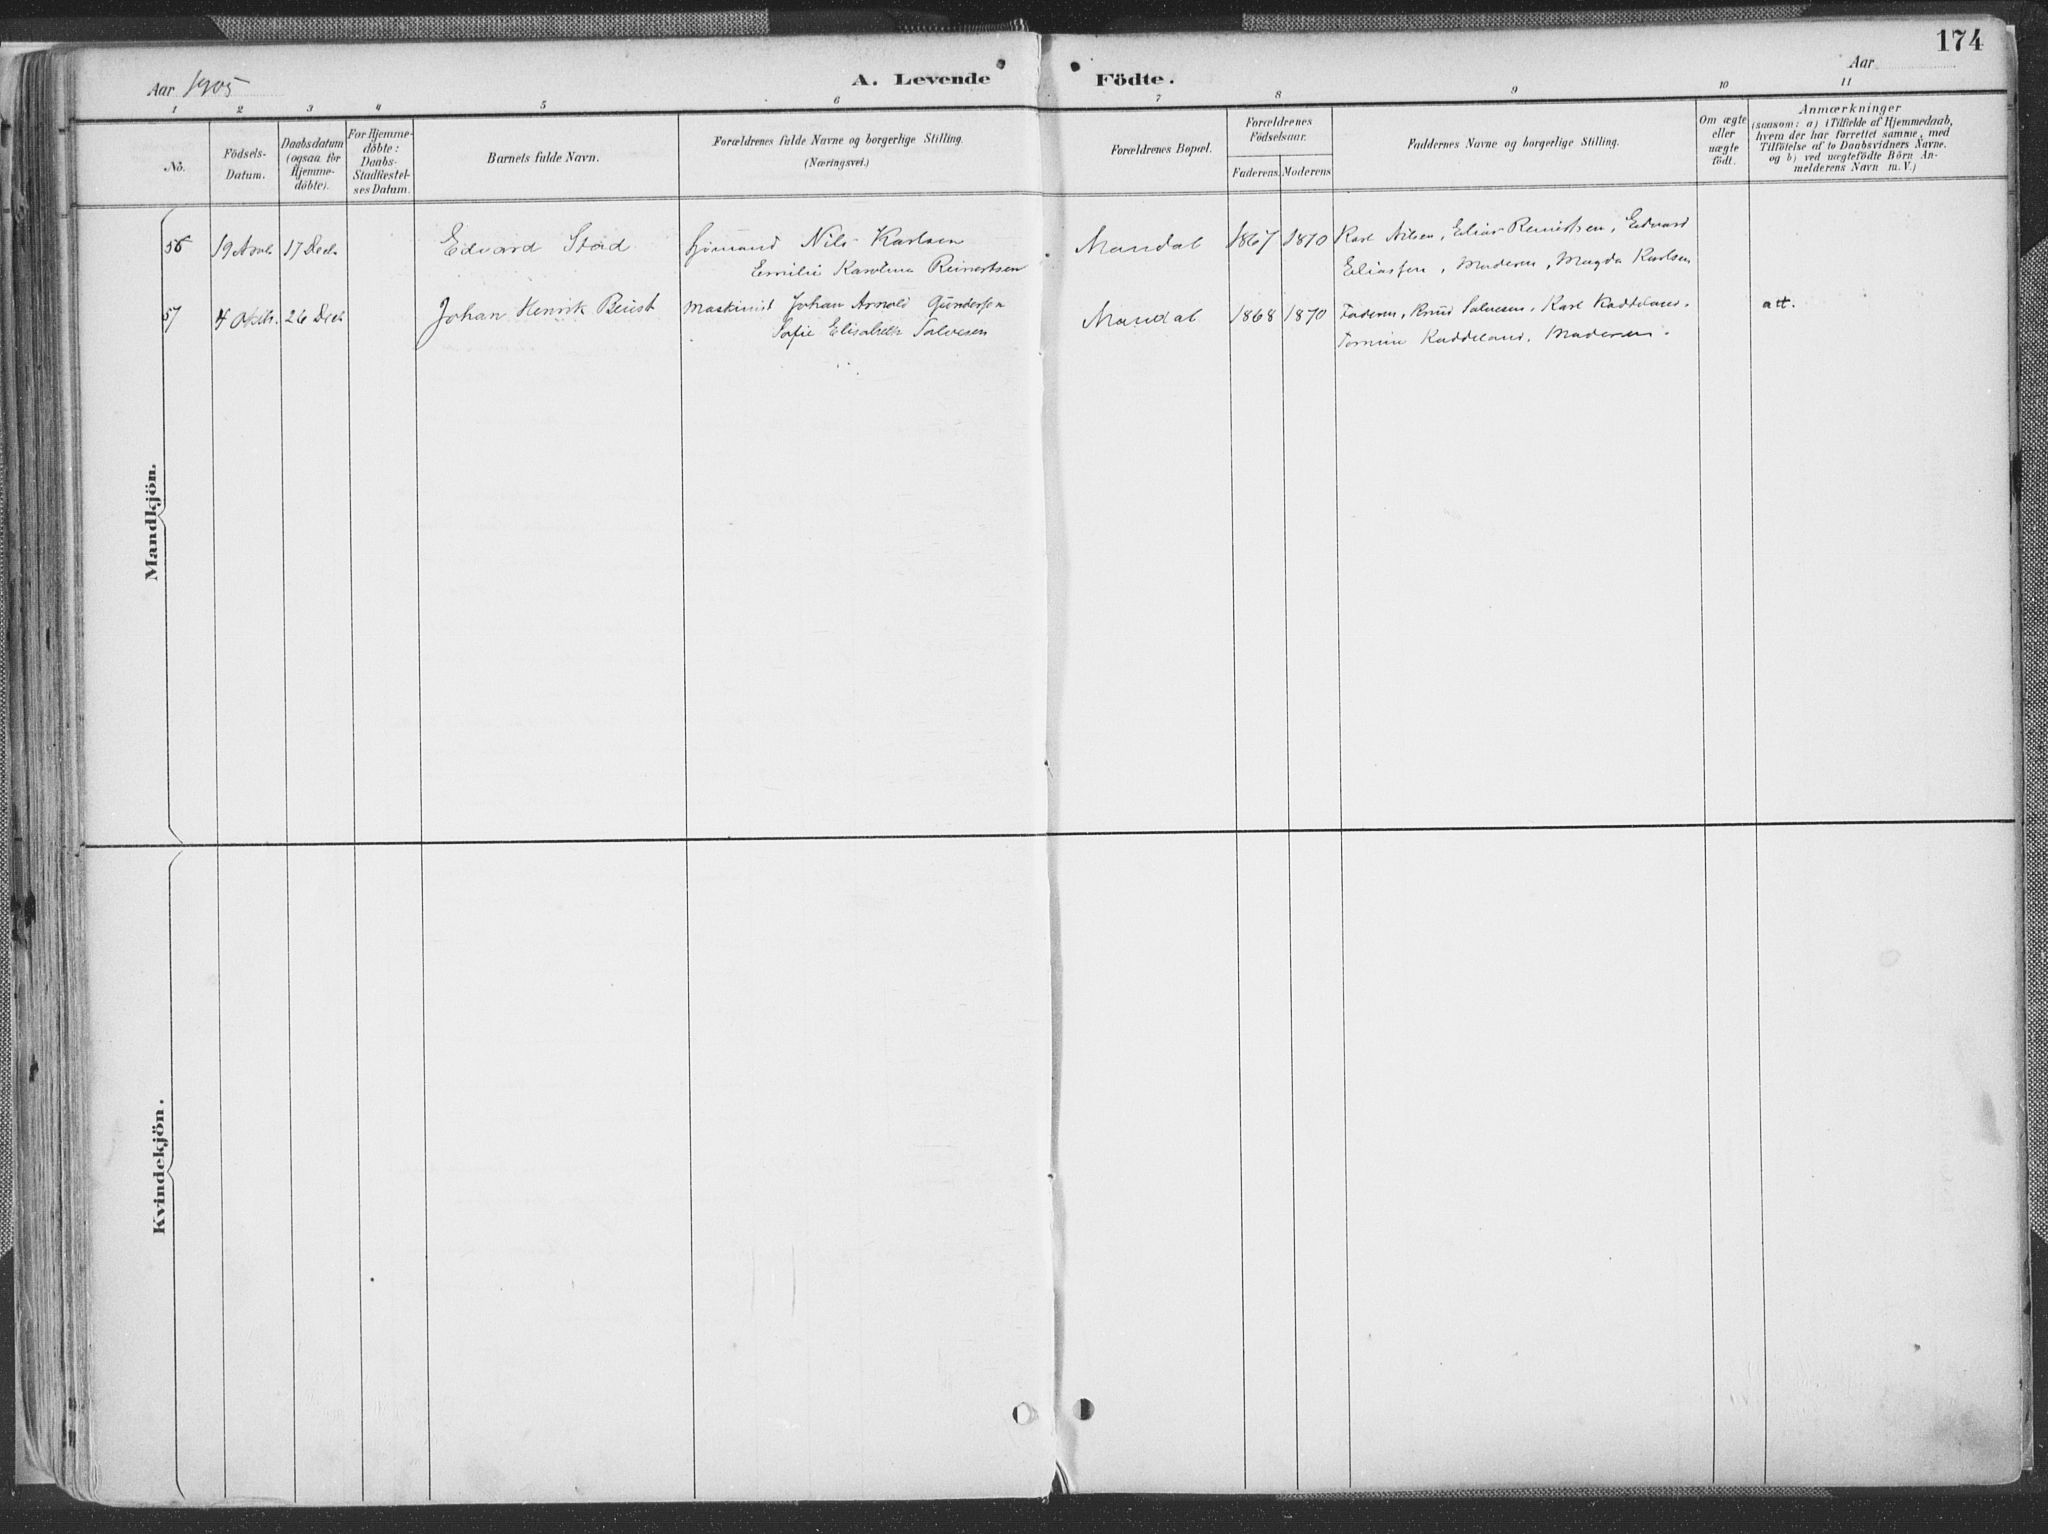 174
Aar 1905
A. Levende Födte.
Aar
1 2 3 4 5 6 7 8 9 10 11
No.
Födsels-Datum.
Daabsdatum (ogsaa for Hjemme-döbte).
For Hjemme-döbte: Daabs-Stadfæstel-ses Datum.
Barnets fulde Navn.
Forældrenes fulde Navne og borgerlige Stilling.
(Næringsvei.)
Forældrenes Bopæl.
Forældrenes Födselsaar.
Faderens. Moderens
Faddernes Navne og borgerlige Stilling.
Om ægte eller uægte födt.
Anmærkninger
(saasom: a) i Tilfælde af Hjemmedaab,
hvem der har forrettet samme, med
Tilföielse af to Daabsvidners Navne.
og b) ved uægtefödte Börn An-
melderens Navn m. V.)
Mandkjön.
56 19 17 Decb. Edvard Stad Sömand Nils Karlsen Mandal 1867 1870 Karl Nilsen, Elias Reinertsen, Edvard
Emilie Karoline Reinertsen Eliassen, Moderen, Magda Karlsen
57 4 Oktb. 26 Decb Johan Henrik Beust Maskinist Johan Arnold Gundersen Mandal 1868 1870 Faderen, Knud Salvesen, Karl Kaddeland, att.
Sofie Elisabeth Salvesen Kaddeland, Moderen.
Kvindekjön.